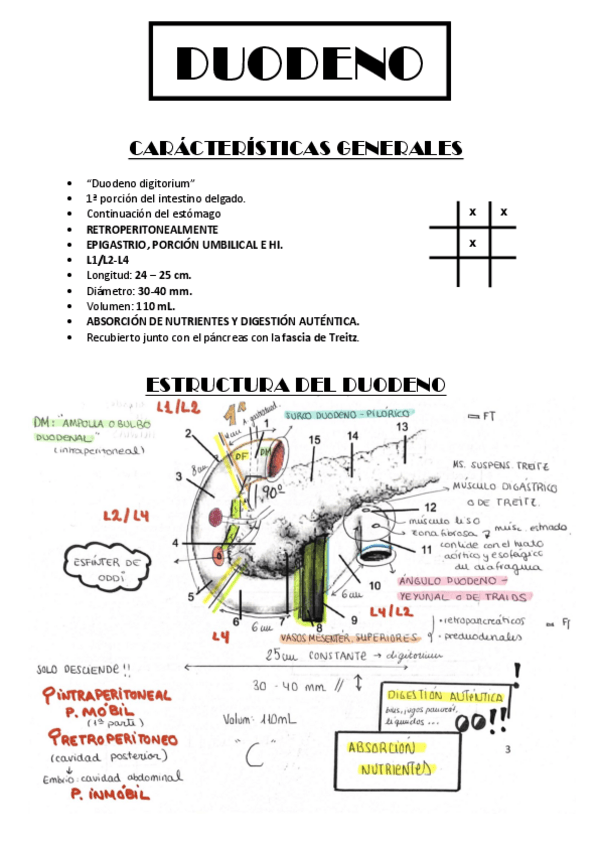 DUODENO
CARÁCTERÍSTICAS GENERALES
“Duodeno digitorium”
1ª porción del intestino delgado.
Continuación del estómago
RETROPERITONEALMENTE
EPIGASTRIO, PORCIÓN UMBILICAL E HI.
L1/L2-L4
Longitud: 24 – 25 cm.
Diámetro: 30-40 mm.
Volumen: 110 mL.
ABSORCIÓN DE NUTRIENTES Y DIGESTIÓN AUTÉNTICA.
Recubierto junto con el páncreas con la fascia de Treitz.
x x
x
ESTRUCTURA DEL DUODENO
L1/L2
DM: "AMPOLLA O BULBO
DUODENAL"
(intraperitoneal)
1ª
SURCO DUODENO-PILÓRICO
FT
1
2
3
4
5
6
7
8
9
10
11
12
13
14
15
DF
DM
8cm
90º
MS. SUSPENS. TREITZ
MÚSCULO DIGÁSTRICO
O DE TREITZ.
músculo liso
zona fibrosa
musc. estriado
coincide con el hiato
aórtico y esofágico
del diafragma
L2/L4
ESFÍNTER DE
ODDI
ÁNGULO DUODENO-
YEYUNAL O DE TRAIDS
6cm
6cm
L4/L2
L4
VASOS MESENTÉR. SUPERIORES
· retropancreáticos
· preduodenales
FT
25cm CONSTANTE → digitorium
SOLO DESCIENDE!!
30 - 40 mm // ↕
INTRAPERITONEAL
P. MÓBIL
(1ª parte)
RETROPERITONEO
(cavidad posterior)
↓
Embrio: cavidad abdominal
P. INMÓBIL
Volum: 110mL
"C"
DIGESTIÓN AUTÉNTICA
líquados...
!!
!
ABSORCIÓN
NUTRIENTES
3